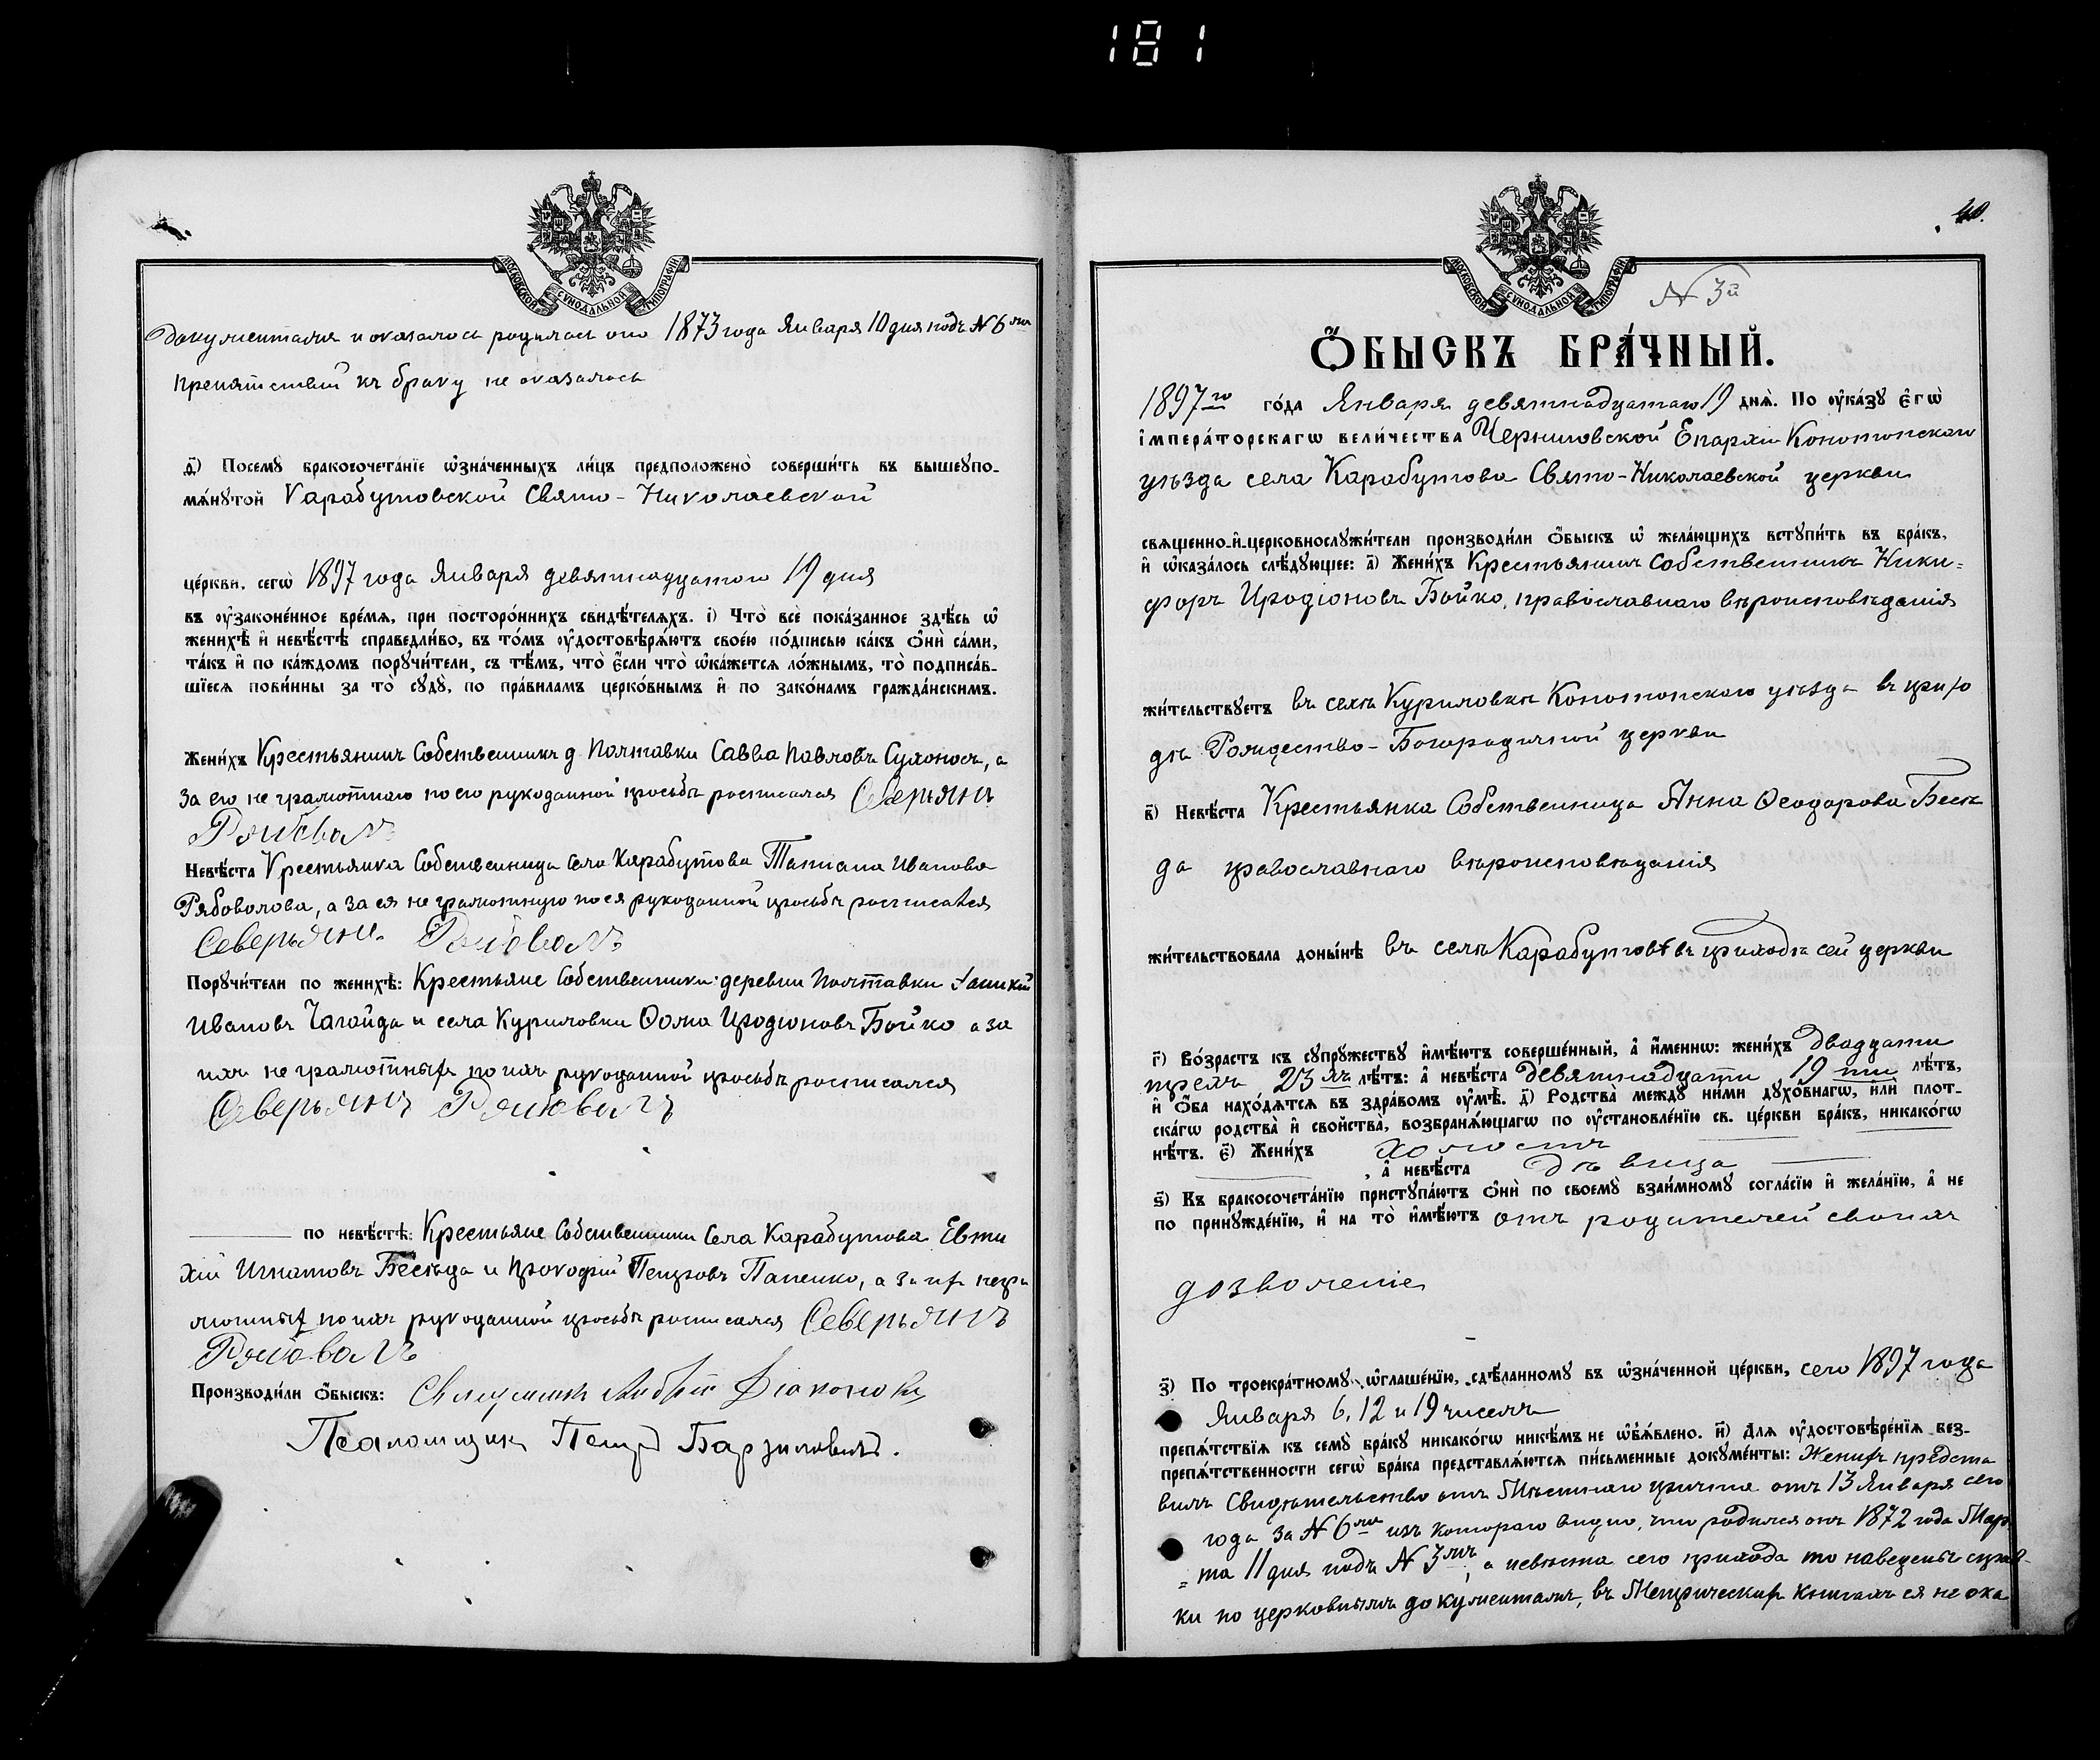 181
МОСКОВСКОЙ СУНОДАЛЬНОЙ ТИПОГРАФІИ
документамъ и оказалось родилась она 1873 года Января 10 дня подъ № 6мъ
препятствій къ браку не оказалось
д҃) Посемꙋ бракосочета́нїе ѡ҆зна́ченныхъ ли́цъ предположено̀ соверши́ть въ вышеꙋпо-
мѧ́нꙋтой Карабутовской Свято-Николаевской
це́ркви, сегѡ̀ 1897 года Января девятнадцатого 19 дня
въ ᲂу҆законе́нное вре́мѧ, при посторо́ннихъ свидѣ́телѧхъ. і) Что̀ всѐ пока́занное здѣ́сь ѡ҆
женихѣ̀ и҆ невѣ́стѣ справедли́во, въ то́мъ ᲂу҆достовѣрѧ́ютъ свое́ю по́дписью ка́къ ѻ҆нѝ са́ми,
та́къ и҆ по ка́ждомъ порꙋчи́тели, съ тѣ́мъ, что̀ є҆́сли что̀ ѡ҆ка́жетсѧ ло́жнымъ, то̀ подписа́в-
шїесѧ пови́нны за то̀ сꙋдꙋ̀, по пра́виламъ церко́внымъ и҆ по зако́намъ гражда́нскимъ.
Жени́хъ Крестьянинъ Собственникъ д Полтавки Савва Павловъ Сухоносъ, а
за его не грамотного по его рукоданной просьбѣ росписался Северьянъ
Рябовалъ
Невѣ́ста Крестьянка Собственница села Карабутова Татіана Иванова
Рябоволова, а за ея не грамотную по ея рукоданной просьбѣ росписался
Северьянъ Рябовалъ
Порꙋчи́тели по женихѣ̀: Крестьяне Собственники: деревни Полтавки
Ивановъ Чагайда и села Куриловки Ѳома Иродіоновъ Бойко а за
ихъ не грамотныхъ по ихъ рукоданной просьбѣ росписался
Северьянъ Рябовалъ
по невѣ́стѣ: Крестьяне Собственники Села Карабутова Евти
хій Игнатовъ Бесѣда и Прокофій Петровъ Папенко, а за ихъ негра
мотныхъ по ихъ рукоданной просьбѣ росписался Северьянъ
Рябовалъ
Производи́ли ѻ҆́быскъ: Священникъ Андрей Діаконовъ
Псаломщикъ Петръ Барзиловичъ.
40.
МОСКОВСКОЙ СУНОДАЛЬНОЙ ТИПОГРАФІИ
№ 3й
Ѻ҆́БЫСКЪ БРА́ЧНЫЙ.
1897го го́да Января девятнадцатаго 19 днѧ̀. По ᲂу҆ка́зꙋ є҆гѡ̀
і҆мпера́торскагѡ вели́чества Черниговской Епархіи Конотопскаго
уѣзда села Карабутова Свято-Николаевской церкви
свѧщенно-и҆-церковнослꙋжи́тели производи́ли ѻ҆́быскъ ѡ҆ жела́ющихъ встꙋпи́ть въ бра́къ,
и҆ ѡ҆каза́лось слѣ́дꙋющее: а҃) Жени́хъ Крестьянинъ Собственникъ Ники=
форъ Иродіоновъ Бойко, православнаго вѣроисповѣданія
жи́тельствꙋетъ въ селѣ Куриловкѣ Конотопскаго уѣзда въ прихо
дѣ Рождество-Богородичной церкви
в҃) Невѣ́ста Крестьянка Собственница Анна Ѳеодорова Бесѣ
да православнаго вѣроисповѣданія
жи́тельствовала доны́нѣ въ селѣ Карабутовѣ въ приходѣ сей церкви
г҃) Во́зрастъ къ сꙋпрꙋ́жествꙋ и҆мѣ́ютъ соверше́нный, а҆ и҆́меннѡ: жени́хъ двадцати
трехъ 23хъ лѣ́тъ: а҆ невѣ́ста девятнадцати 19 ти лѣ́тъ,
и҆ ѻ҆́ба нахо́дѧтсѧ въ здра́вомъ ᲂу҆мѣ̀. д҃) Родства̀ междꙋ̀ ни́ми дꙋхо́внагѡ, и҆лѝ плот-
ска́гѡ родства̀ и҆ свойства̀, возбранѧ́ющагѡ по ᲂу҆становле́нїю св. це́ркви бра́къ, никако́гѡ
нѣ́тъ. є҃) Жени́хъ холостъ
, а҆ невѣ́ста дѣвица
ѕ҃) Къ бракосочета́нїю пристꙋпа́ютъ ѻ҆нѝ по своемꙋ̀ взаи́мномꙋ согла́сїю и҆ жела́нїю, а҆ не
по принꙋжде́нїю, и҆ на то̀ и҆мѣ́ютъ отъ родителей своихъ
дозволеніе
з҃) По троекра́тномꙋ ѡ҆глаше́нїю, сдѣ́ланномꙋ въ ѡ҆зна́ченной це́ркви, сего 1897 года
Января 6, 12 и 19 числъ
препѧ́тствїѧ къ семꙋ̀ бра́кꙋ никако́гѡ никѣ́мъ не ѡ҆б̾ѧ́влено. и҃) Длѧ ᲂу҆достовѣре́нїѧ без-
препѧ́тственности сегѡ̀ бра́ка представлѧ́ютсѧ пи́сьменные докꙋме́нты: Женихъ предста
вилъ Свидѣтельство отъ Мѣстнаго причта отъ 13 Января сего
года за № 6мъ изъ котораго видно, что родился онъ 1872 года Мар
=та 11 дня подъ № 3мъ, а невѣста сего прихода то наведены справ-
ки по церковнымъ документамъ, въ Метрическихъ книгахъ ея не ока